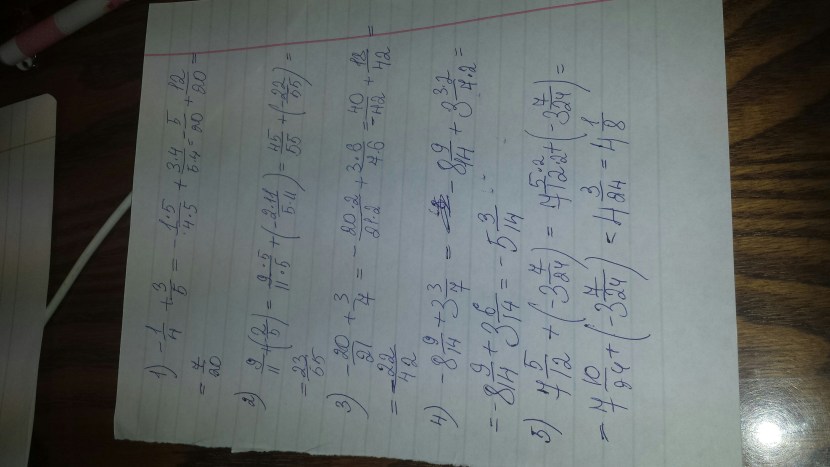 1) -1/4 + 3/5 = -1·5/4·5 + 3·4/5·4 = -5/20 + 12/20 =
= 7/20
2) 9/11 + (-2/5) = 9·5/11·5 + (-2·11/5·11) = 45/55 + (-22/55) =
= 23/55
3) -20/21 + 3/7 = -20·2/21·2 + 3·6/7·6 = 40/-42 + 18/42 =
= -22/42
4) -8 9/14 + 3 3/7 = -8 9/14 + 3 3·2/7·2 =
= -8 9/14 + 3 6/14 = -5 3/14
5) 7 5/12 + (-3 7/24) = 7 5·2/12·2 + (-3 7/24) =
= 7 10/24 + (-3 7/24) = 4 3/24 = 4 1/8